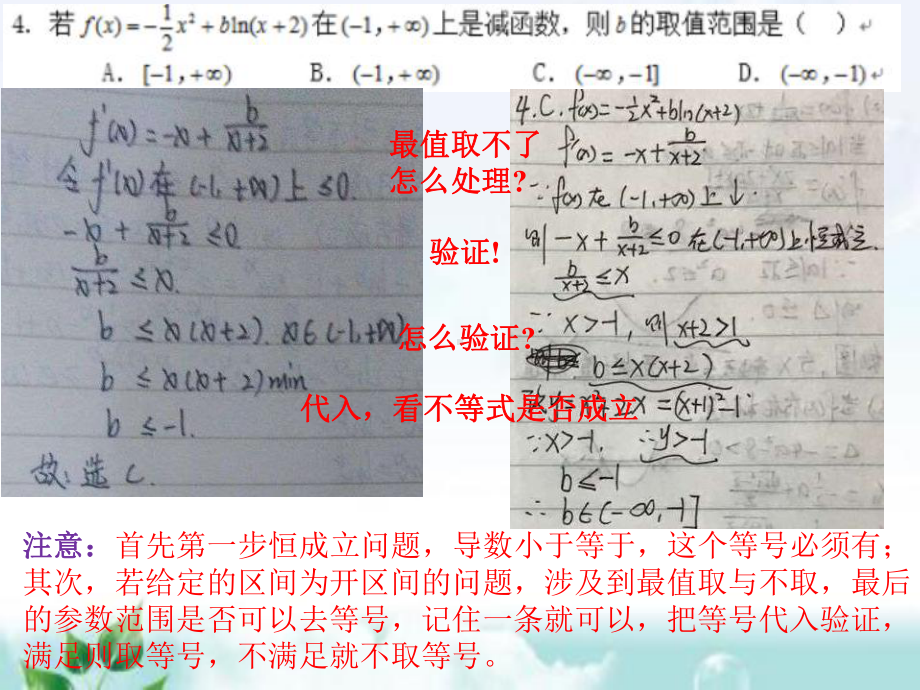 4. 若 f(x)=-\frac{1}{2}x²+bln(x+2)在(-1,+∞)上是减函数，则b的取值范围是（　）
A．[-1,+∞)　B．(-1,+∞)　C．(-∞,-1]　D．(-∞,-1)
f'(x)=-x+\frac{b}{x+2}
令f'(x)在(-1,+∞)上≤0.
-x+\frac{b}{x+2}≤0
\frac{b}{x+2}≤x.
b≤x(x+2). x∈(-1,+∞)
b≤x(x+2)min
b≤-1.
故:选C.
最值取不了
怎么处理?
验证!
怎么验证?
代入，看不等式是否成立
4.C. f(x)=-\frac{1}{2}x²+bln(x+2)
f'(x)=-x+\frac{b}{x+2}
∵f(x)在(-1,+∞)上↓.
则-x+\frac{b}{x+2}≤0在(-1,+∞)上恒成立.
\frac{b}{x+2}≤x
∵x>-1,则x+2>1
b≤x(x+2)
=x²+2x=(x+1)²-1
∵x>-1, ∴y>-1
b≤-1
∴b∈(-∞,-1]
注意：首先第一步恒成立问题，导数小于等于，这个等号必须有；
其次，若给定的区间为开区间的问题，涉及到最值取与不取，最后
的参数范围是否可以去等号，记住一条就可以，把等号代入验证，
满足则取等号，不满足就不取等号。